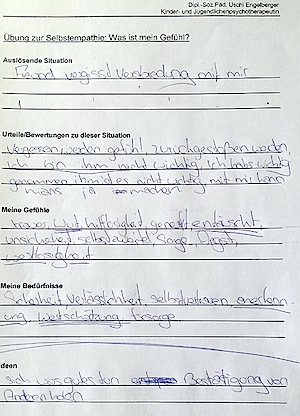 Dipl.-Soz.Päd. Uschi Engelberger
Kinder- und Jugendlichenpsychotherapeutin
Übung zur Selbstempathie: Was ist mein Gefühl?
Auslösende Situation
Freund vergisst Verabredung mit mir
Urteile/Bewertungen zu dieser Situation
vergessen werden gefühl zurückgestoßen werden
ich bin ihm nicht wichtig ich habs wichtig
genommen ihm ist es nicht wichtig mit mir kann
mans ja machen
Meine Gefühle
trauer, Wut hilflosigkeit, genervt, enttäuscht
unsicherheit, selbstzweifel Sorge, Angst,
wertlosigkeit
Meine Bedürfnisse
Sicherheit Verlässlichkeit, selbstvertrauen anerkenn
ung, Wertschätzung
deen
sich was gutes tun Bestätigung von
Anderen holen